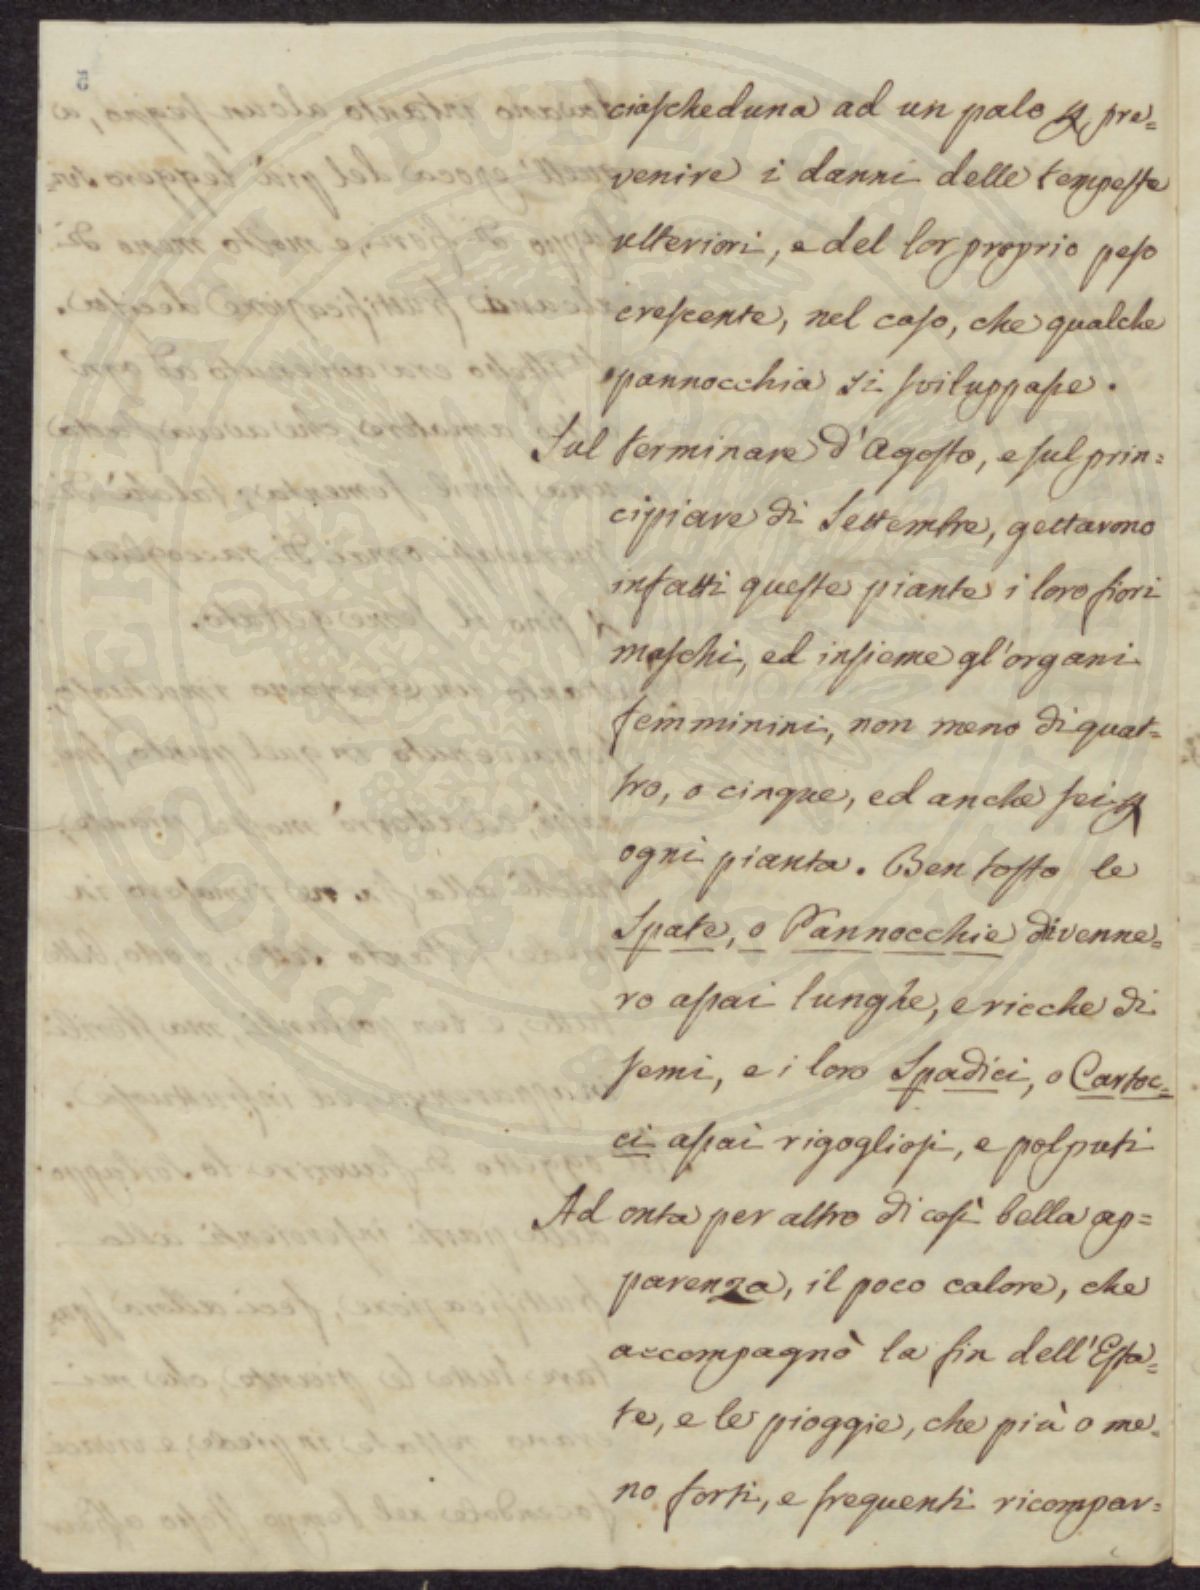 ciascheduna ad un palo p pre=
venire i danni delle tempeste
ulteriori, e del lor proprio peso
crescente, nel caso, che qualche
pannocchia si sviluppasse.
Sul terminare d'Agosto, e sul prin=
cipiare di Settembre, gettarono
infatti queste piante i loro fiori
maschi, ed insieme gl'organi
femminini, non meno di quat=
tro, o cinque, ed anche sei p
ogni pianta. Ben tosto le
Spate, o Pannocchie divenne=
ro assai lunghe, e ricche di
semi, e i loro Spadici, o Cartoc=
ci assai rigogliosi, e polputi
Ad onta per altro di così bella ap=
parenza, il poco calore, che
accompagnò la fin dell'Esta=
te, e le pioggie, che più o me=
no forti, e frequenti ricompar=